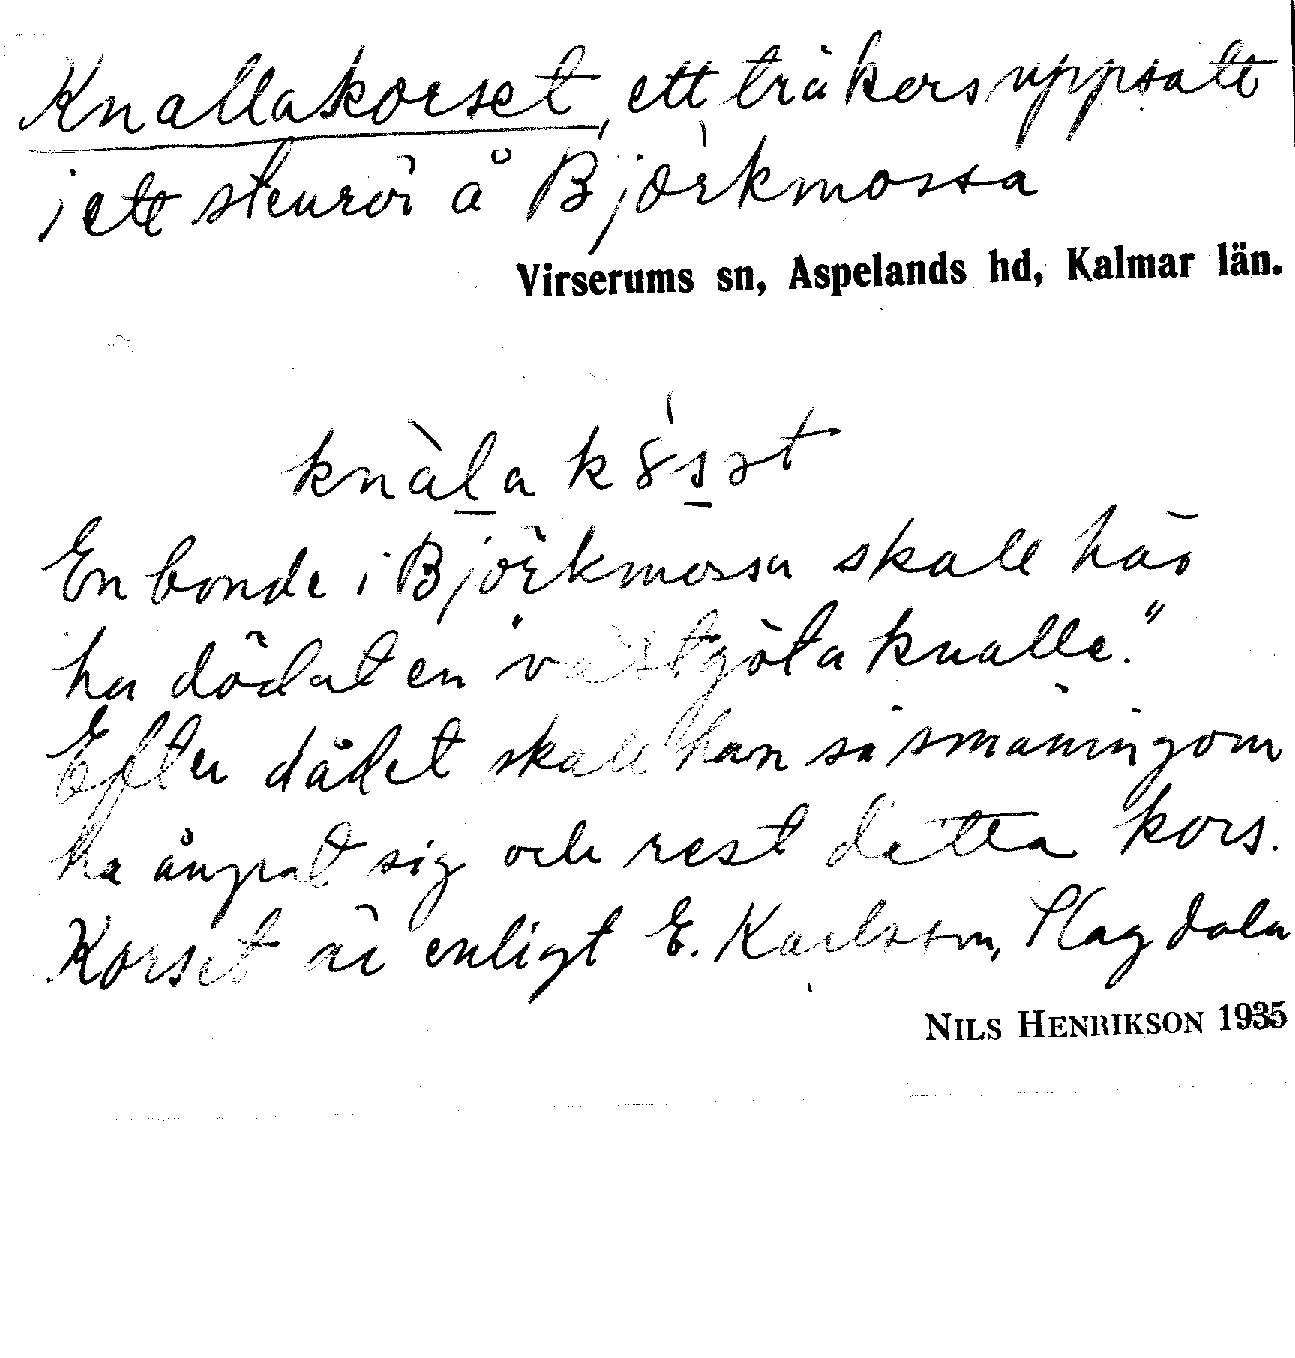 Knallakorset, ett träkors uppsatt
i ett stenrör å Björkmossa
Virserums sn, Aspelands hd, Kalmar län.
knàlakȣ́sət
En bonde i Björkmossa skall här
ha dödat en "västgötaknalle."
Efter dådet skall han så småningom
ha ångrat sig och rest detta kors.
Korset är enligt E. Karlsson, Hagdala
NILS HENRIKSON 1935